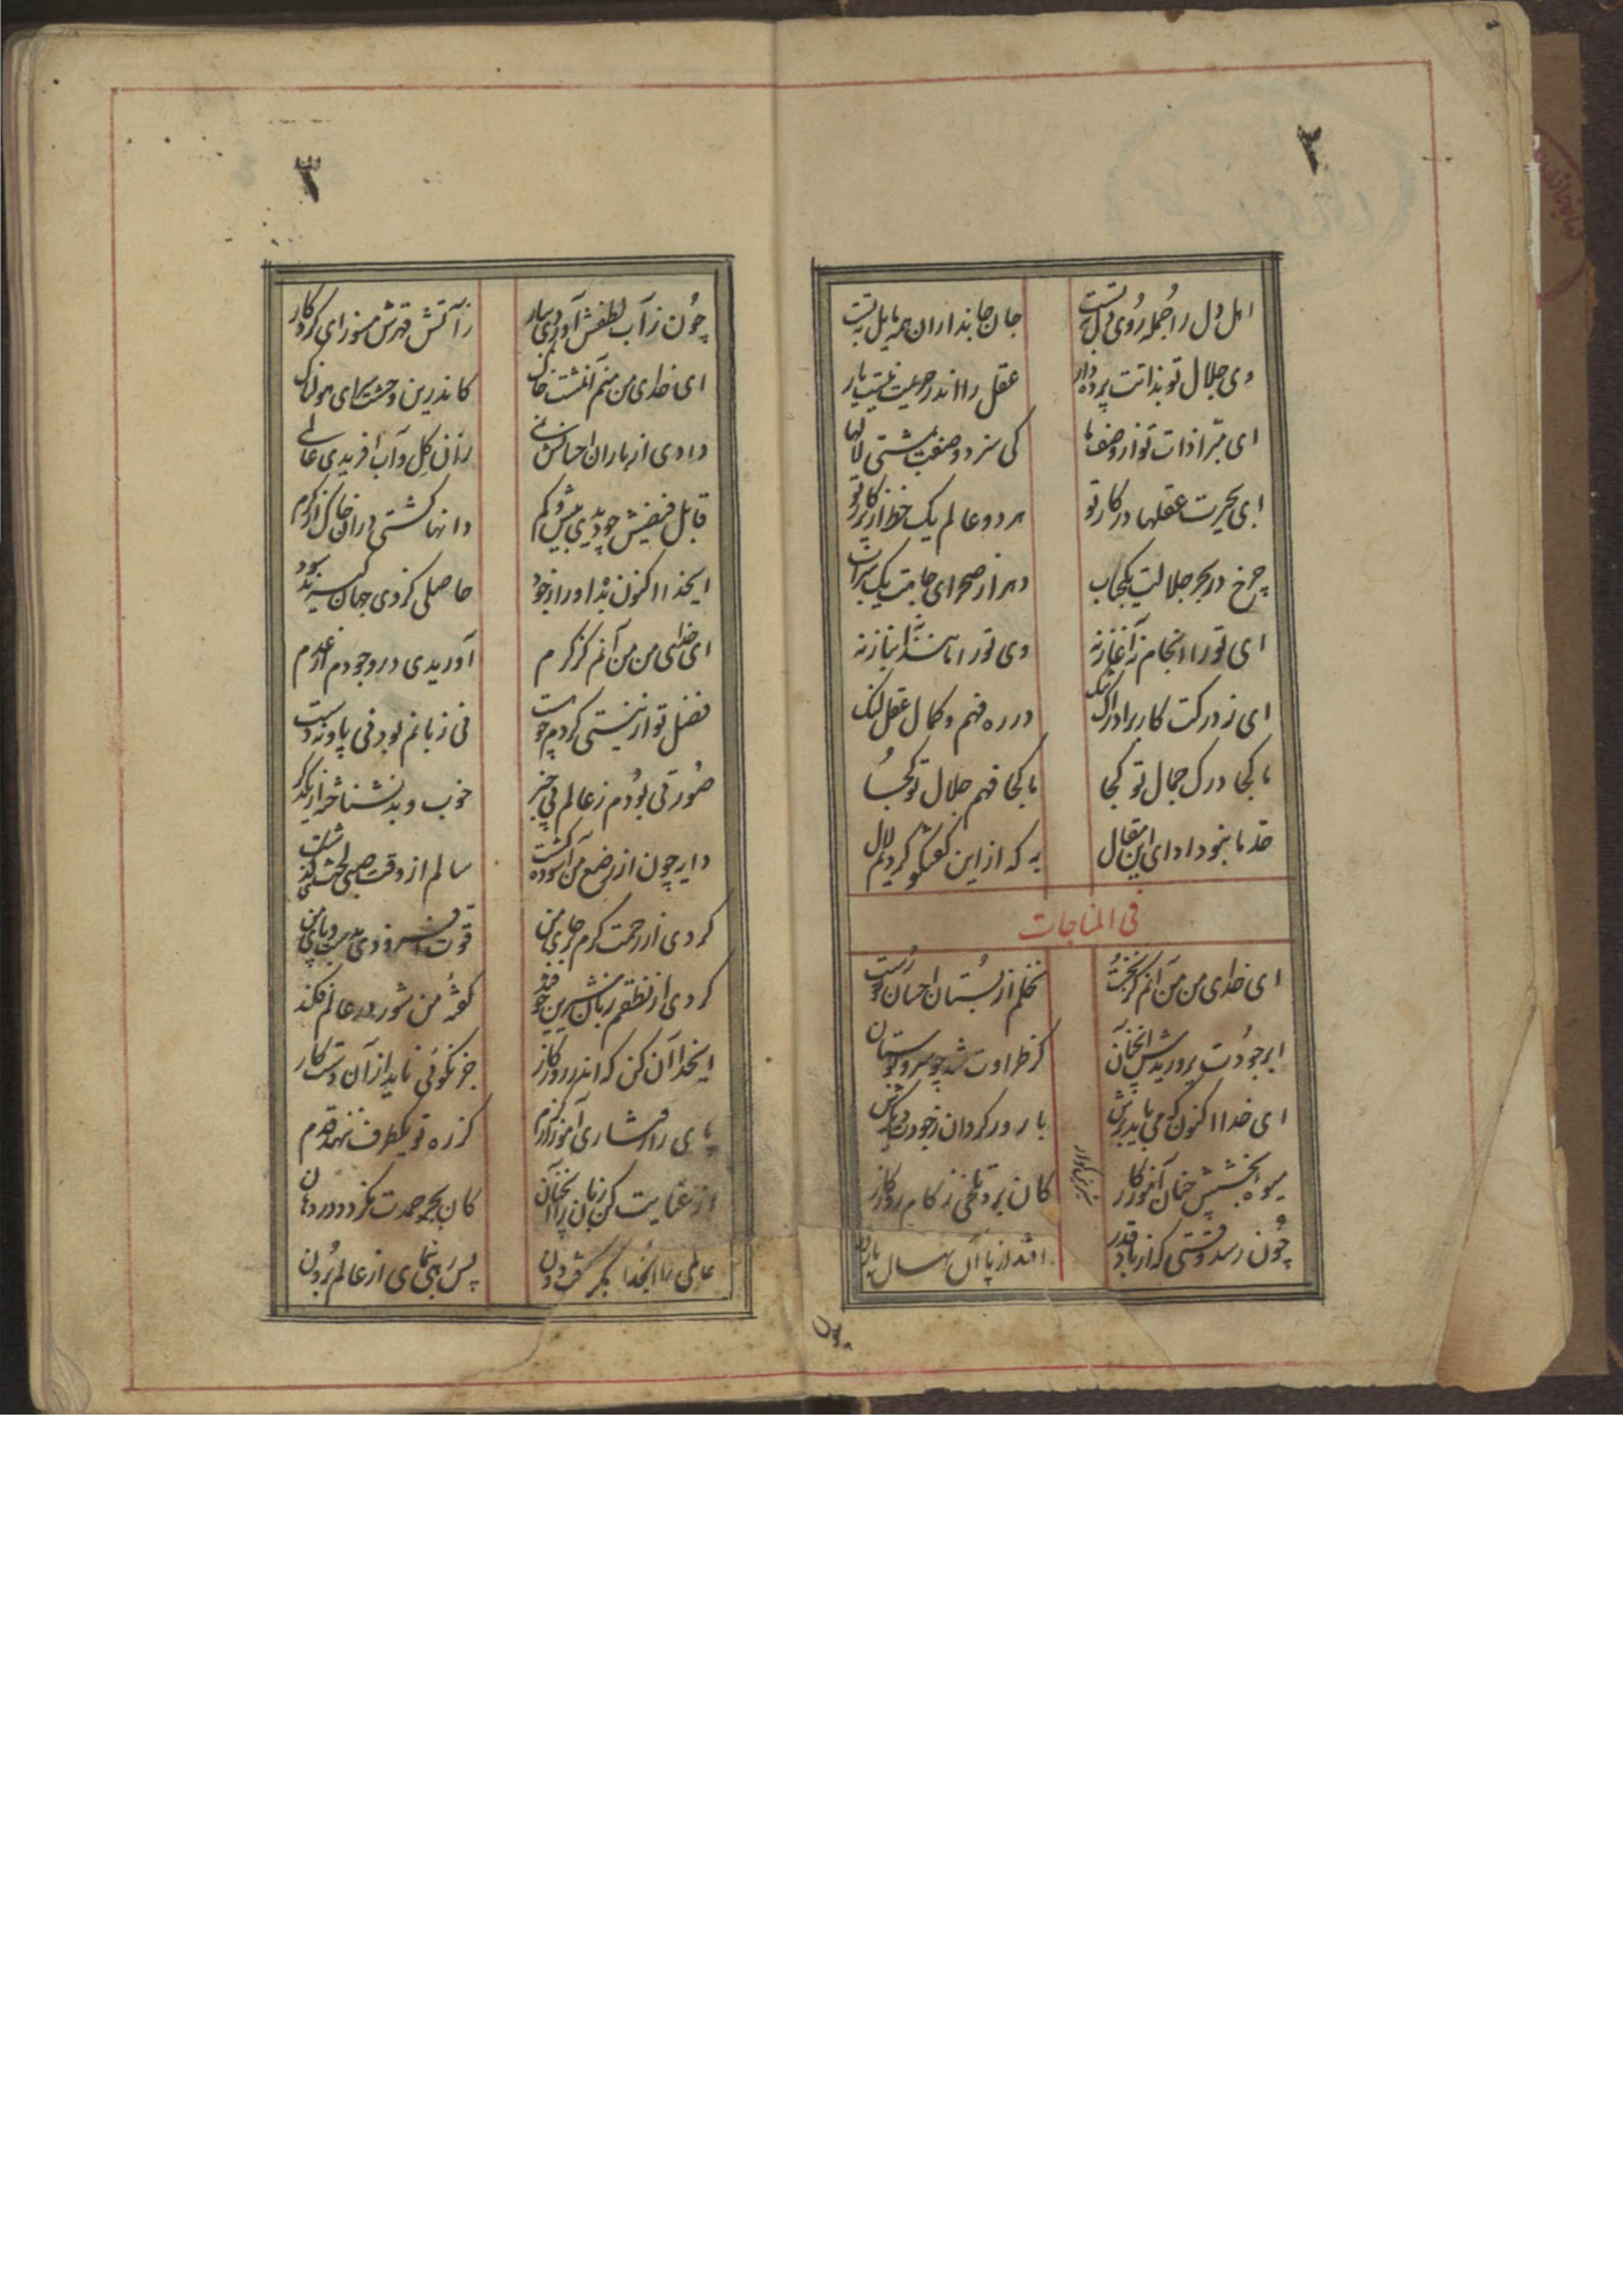 ۲
اهل دل را جمله روی دل بتست
جان جانبداران همه مایل بتست
وی جلال تو بذاتت پرده دار
عقل را اندر حریمت نیست بار
ای مبرا ذات تو از وصفها
کی سزد وصفت بمشتی لالها
ای بحیرت عقلها در کار تو
هر دو عالم یک خط از پرگار تو
چرخ در بحر جلالت یکحباب
ای تو را انجام نه آغاز نه
وی تو را مانند نه انباز نه
ای ز درکت کار بر ادراک تنک
در ره فهم و کمال عقل لنک
ما کجا درک جمال تو کجا
ما کجا فهم جلال تو کجا
حد ما نبود ادای این مقال
به که از این گفتگو گردیم لال
فی المناجات
ای خدای من من آنم کز نخست
نخلم از بستان احسان تو رست
ابر جودت پروریدش آنچنان
کز طراوت شد چو سرو بوستان
ای خدا اکنون که می باید برش
بارور گردان ز جود
میوه بخشش چنان آموزگار
کان برد تلخی ز کام روزگار
چون رسد وقتی که از باد قدر
افتد از پا آن نهال
چون
۳
چون ز آب لطفش آوردی ببار
ز آتش قهرش مسوز ای کردگار
ای خدای من منم آنمشت خاک
کاندرین وحشت سرای هولناک
دادی از باران احسانش نمی
زان گل و آب آفریدی عالمی
قابل فیضیش چو دیدی بیش و کم
دانها کشتی در آن خاک از کرم
ایخدا اکنون بده او را ز جود
حاصلی کز وی جهان
ای خدای من من آنم کز کرم
آوریدی در وجودم از عدم
فضل تو از نیستی کردم چو هست
نی زبانم بود نی پا و نه دست
صورتی بودم ز عالم بی خبر
خوب و بد نشناخته از یکدگر
دایه چون از رضع من آسوده گشت
سالم از وقت صبی
کردی از رحمت کرم
قوت افزودی
کردی از نطقم زبان شیرین چو قند
گفته من شور در عالم فکند
ایخدا آن کن که اندر روزگار
جز نکوئی ناید از آن دستکار
پای را رفتاری آموز از کرم
کز ره تو یکطرف ننهد قدم
از عنایت کن زبان را آنچنان
کان بجز حمدت نگردد در دهان
عالمی را ایخدا
پس رهی بنمای از عالم برون